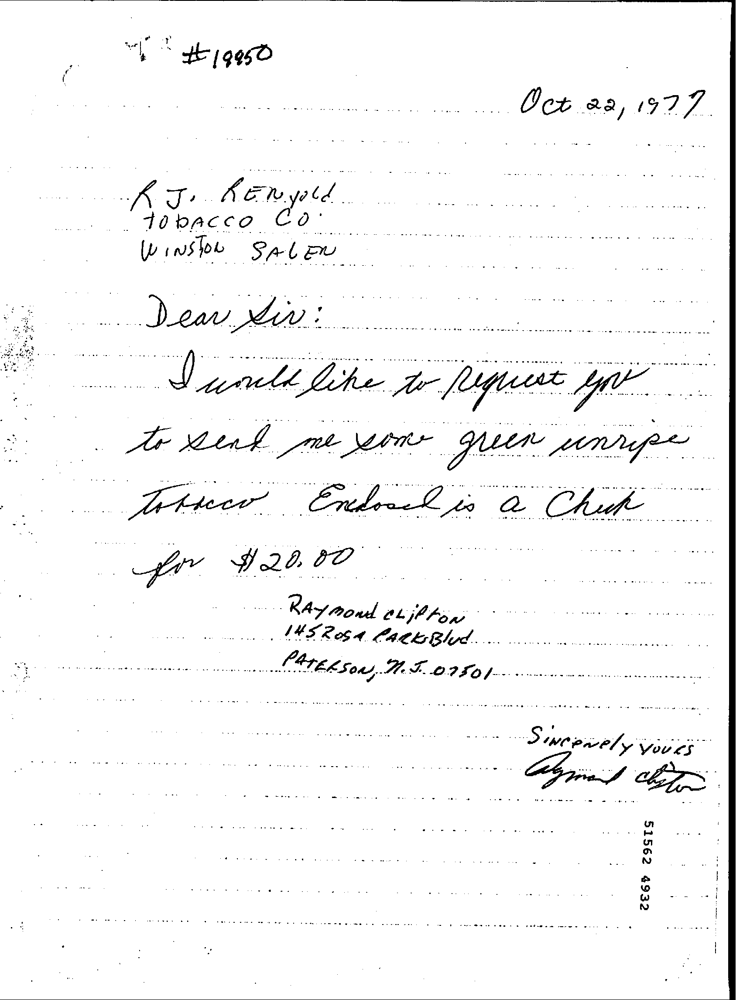 #19950
Oct 22, 1977
R J. RENyold
tobACCO CO.
WINSTON SALEN
Dear Sir:
I would like to request you
to send me some green unripe
tobacco Enclosed is a Check
for $20.00
RAymond cLifton
145 Rosa PARKS Blvd
PATERSON, N.J. 07501
Sincerely yours
Raymond Clifton
51562 4932